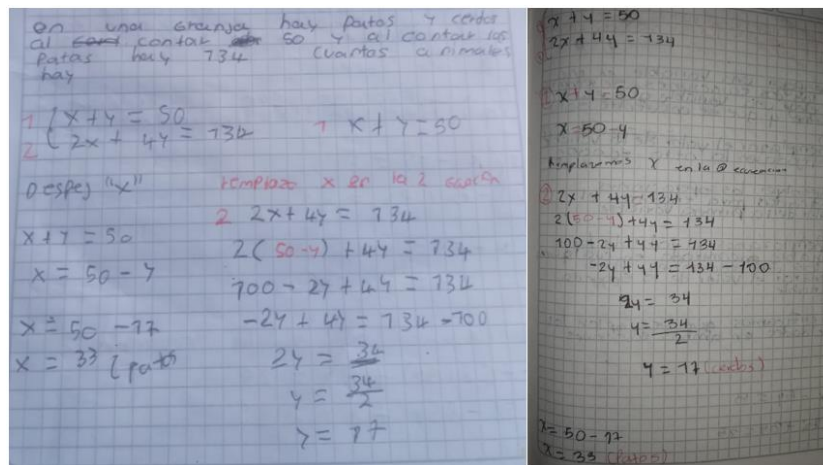 en una granja hay patos y cerdos
al contar 50 y al contar las
patas hay 134 cuantos animales
hay
1 x + y = 50
2 2x + 4y = 134
1 x + y = 50
Despej "x"
x + y = 50
x = 50 - y
x = 50 - 17
x = 33 (patos
remplazo x en la 2
2 2x + 4y = 134
2(50-y) + 4y = 134
100 - 2y + 4y = 134
-2y + 4y = 134 - 100
2y = 34
y = 34/2
y = 17
x + y = 50
2x + 4y = 134
x + y = 50
x = 50 - y
Remplazamos x en la
2 2x + 4y = 134
2(50-y) + 4y = 134
100 - 2y + 4y = 134
-2y + 4y = 134 - 100
2y = 34
y = 34/2
y = 17 (cerdos)
x = 50 - 17
x = 33 (patos)